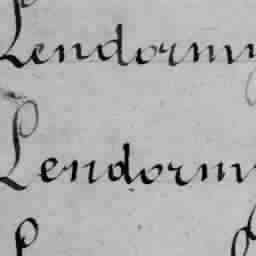 Lendormy
Lendormy